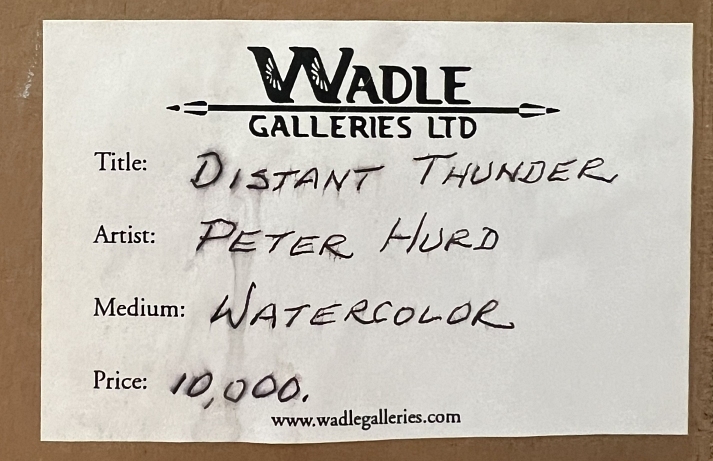 WADLE
GALLERIES LTD
Title: DISTANT THUNDER
Artist: PETER HURD
Medium: WATERCOLOR
Price: 10,000.
www.wadlegalleries.com